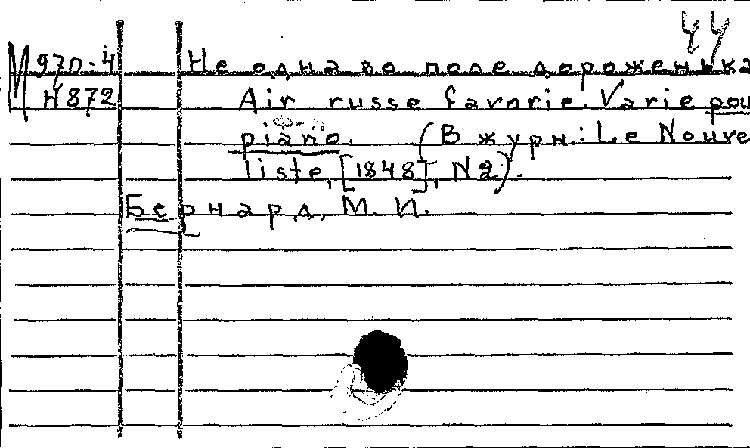 44
М 97п-4 Не одна во поле дороженька
Н872 Air russe favorie. Varie pou
piano. (В журн.: Le Nouvel
liste, [1848], N2).
Бернард, М. И.